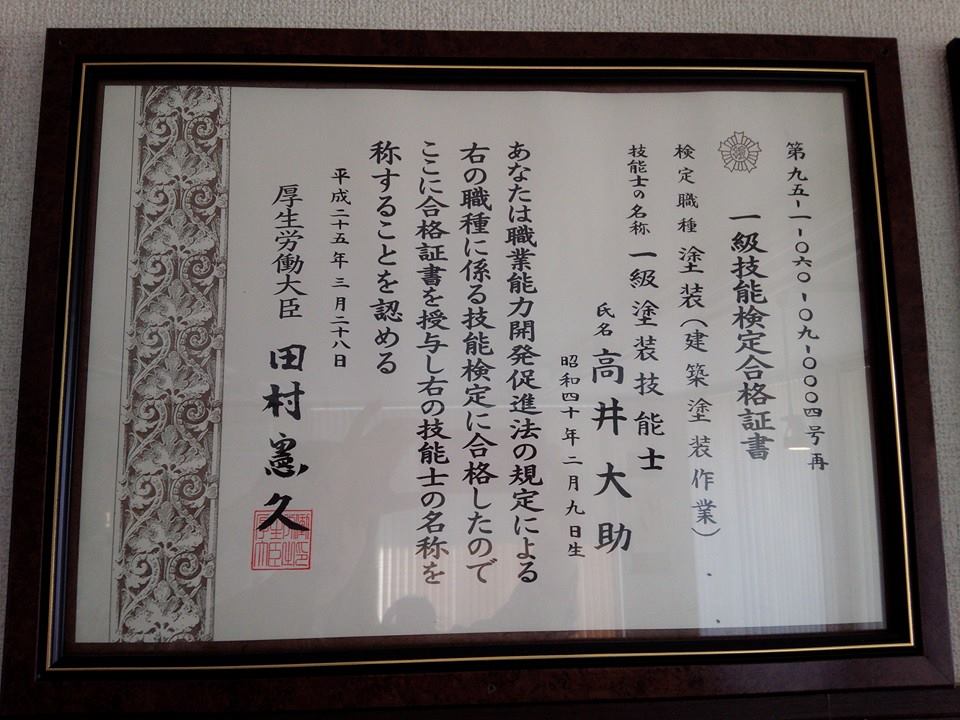 第九五-一-〇六〇-〇九-〇〇〇四号再
一級技能検定合格証書
検定職種 塗装(建築塗装作業)
技能士の名称 一級塗装技能士
氏名 高井大助
昭和四十年二月九日生
あなたは職業能力開発促進法の規定による
右の職種に係る技能検定に合格したので
ここに合格証書を授与し右の技能士の名称を
称することを認める
平成二十五年三月二十八日
厚生労働大臣 田村憲久